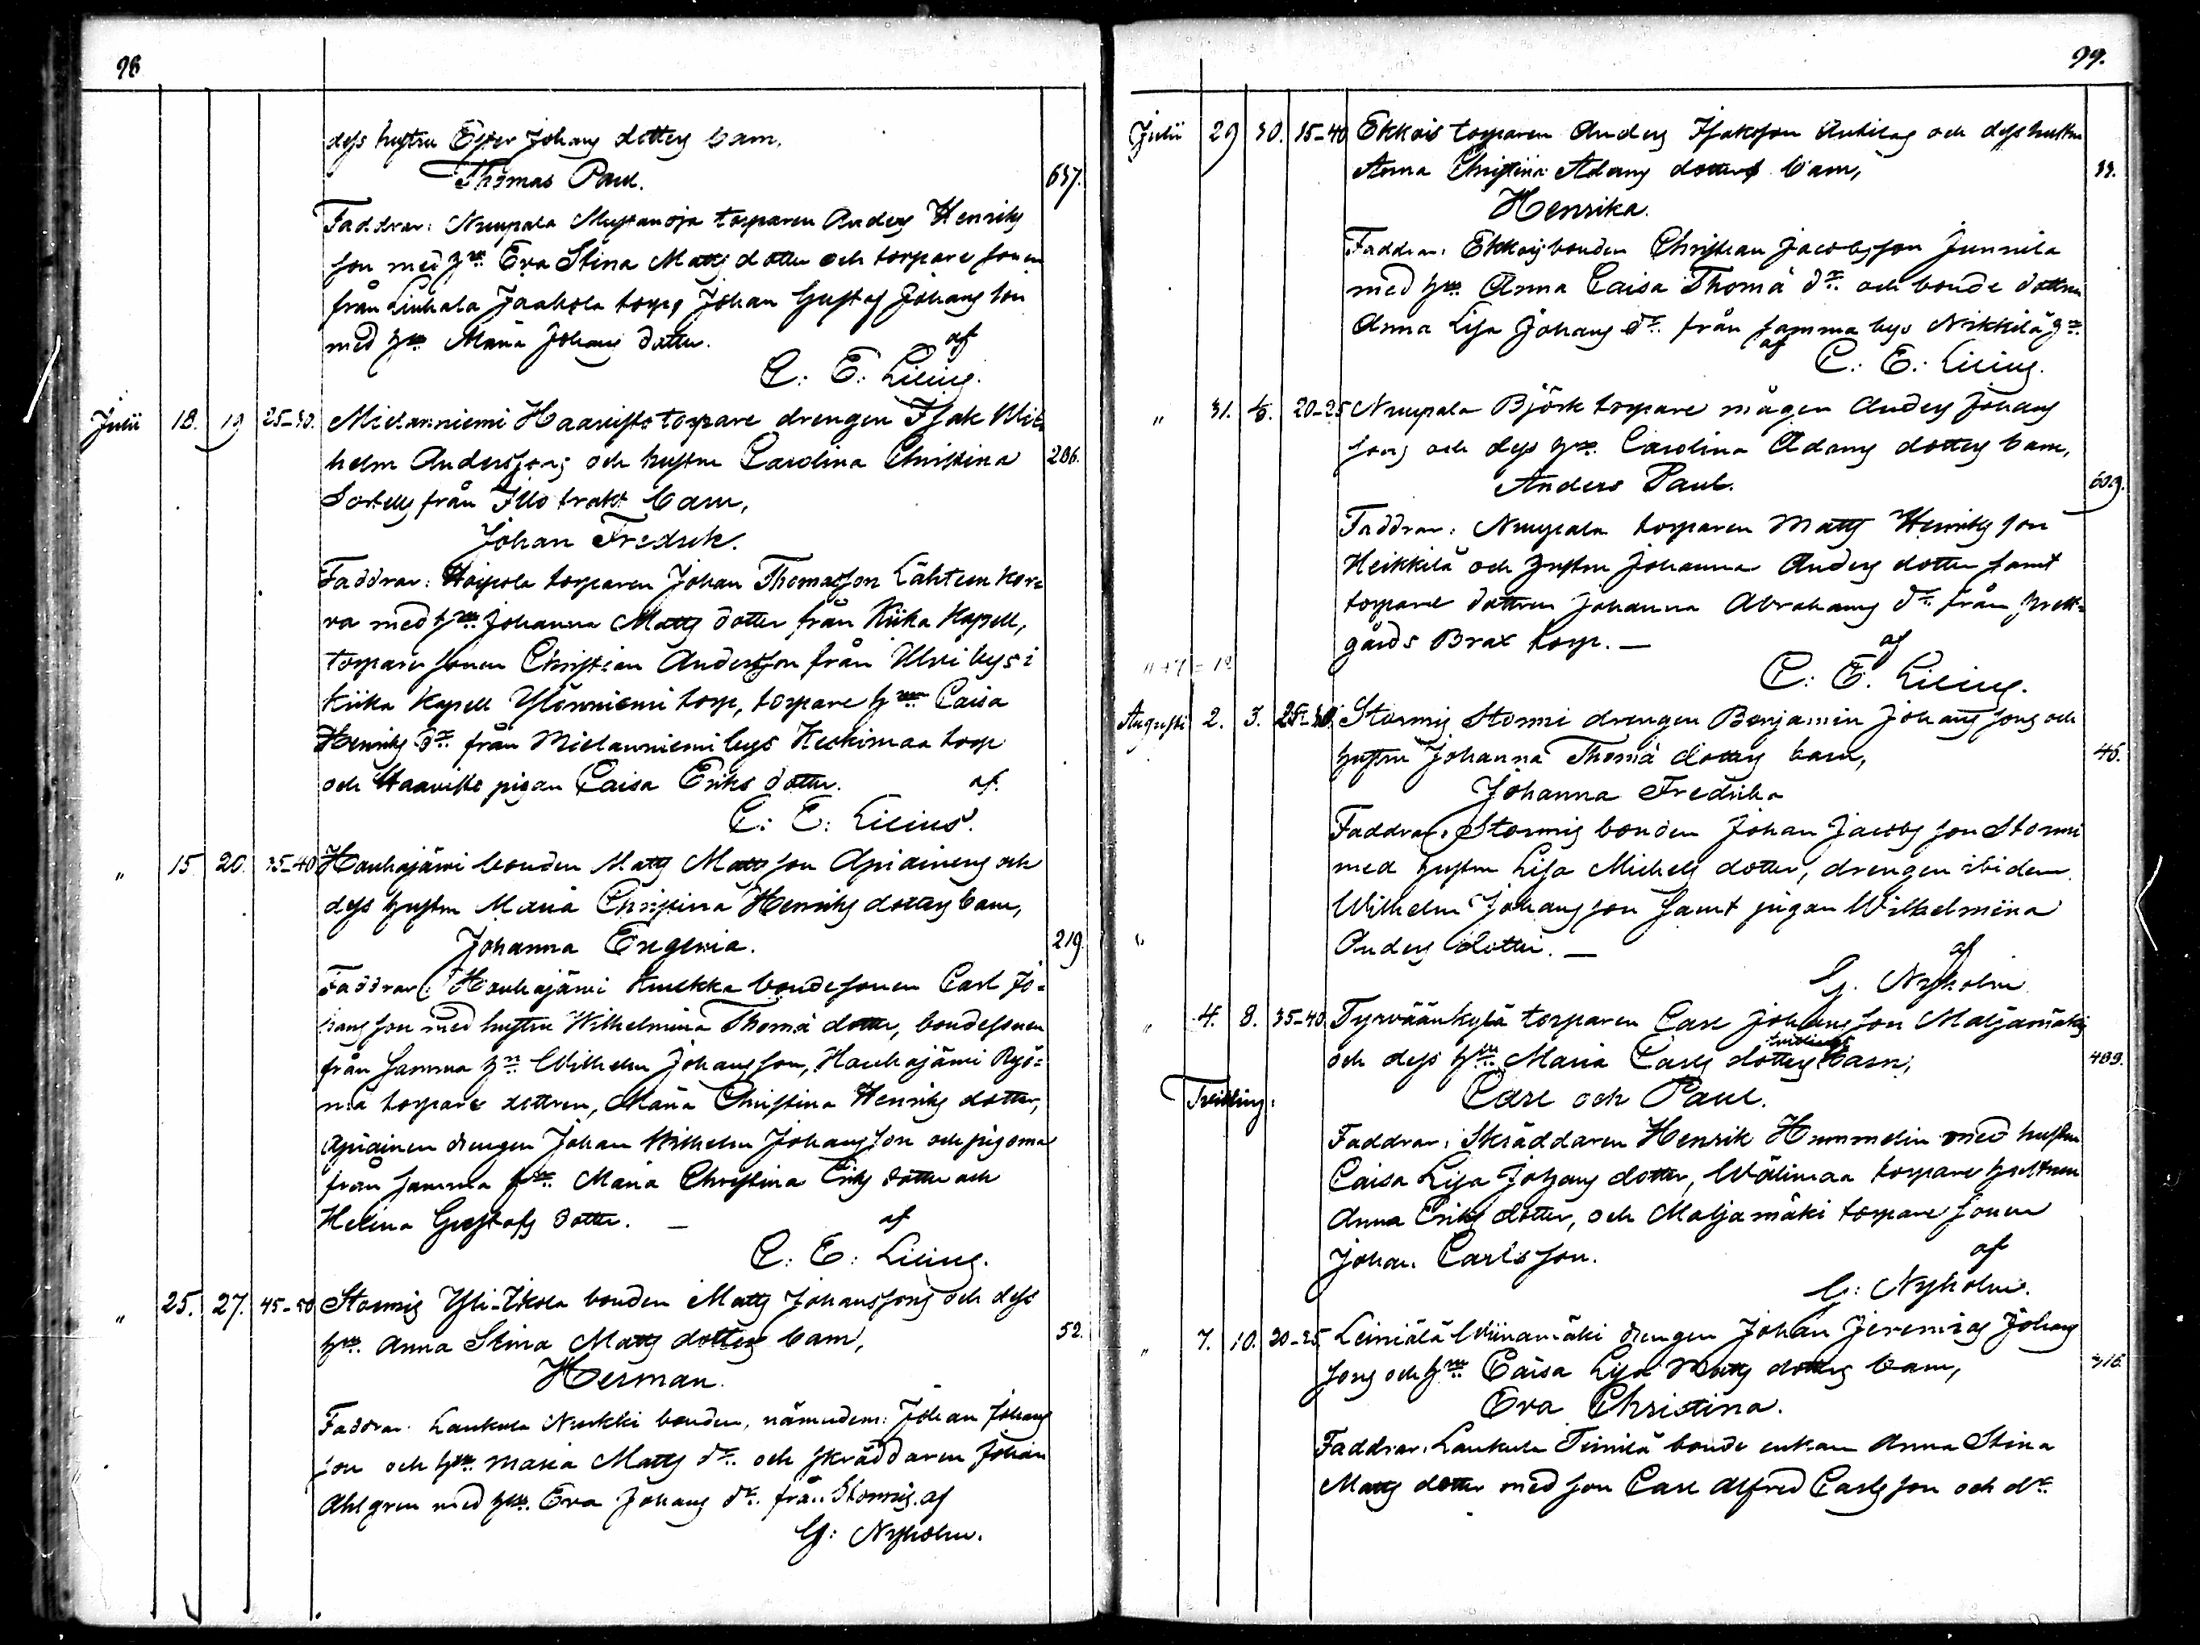 98
dess hustru Ester Johans dotters barn,
Thomas Paul. 657.
Faddrar: Nuupala Mustanoja torparen Anders Henriks
son med h:u Eva Stina Matts dotter och torpare sonen
från Liuhala Jaakola torp, Johan Gustaf Johans son
med h:u Maria Johans dotter. af
C: E: Lilius.
Julii 18. 19 25-30. Mielanniemi Haavisto torpare drengen Isak Wil-
helm Anderssons och hustru Carolina Christina 206.
från Illo trakt barn,
Johan Fredrik.
Faddrar: torparen Johan Thomasson Lähteen kor-
va med h:u Johanna Matts dotter från Kiika Kapell,
torpare sonen Christian Andersson från Ulvi bys i
Kiika Kapell Ylönniemi torp, torpare h:u Caisa
Henriks d:r från Mielanniemi bys torp
och Haavisto pigan Caisa Eriks dotter. af
C: E: Lilius.
" 15 20. 35-40 Houhajärvi bonden Matts Mattsson Apiainens och
dess hustru Maria Christina Henriks dotters barn,
Johanna Eugenia. 219
Faddrar: Houhajärvi bondesonen Carl Jo-
hansson med hustru Wilhelmina Thomä dotter, bondesonen
från samma h:n Wilhelm Johansson, Houhajärvi
torpare dottren, Maria Christina Henriks dotter,
Apiainen drengen Johan Wilhelm Johansson och pigorna
från samma Maria Christina Eriks dotter och
Helena Gustafs dotter. — af
C: E: Lilius.
" 25. 27. 45-50 Stormis Yli-Ikola bonden Matts Johanssons och dess
h:u Anna Stina Matts dotters barn, 52.
Herman.
Faddrar: Laukula Nuukki bonden, nämndem: Johan Johans
son och h:u Maria Matts d:r och skräddaren Johan
Ahlgren med h:u Eva Johans d:r från Stormis. af
G: Nyholm.
99.
Julii 29 30. 35-40 Ekkois torparen Anders Isaksson Anttilas och dess hustru
Anna Christina Adams dotters barn, 33.
Henrika.
Faddrar: Ekkois bonden Christian Jacobsson Junnila
med h:u Anna Caisa Thomä d:r och bonde dottren
Anna Lisa Johans d:r från samma bys Nikkilä
af C: E: Lilius.
" 31. 20-25 Nuupala Björk torpare mågen Anders Johans
sons och dess h:u Carolina Adams dotters barn,
Anders Paul. 609.
Faddrar: Nuupala torparen Matts Henriks son
Heikkilä och hustru Johanna Anders dotter samt
torpare dottren Johanna Abrahams d:r från prest-
gårds Brax torp. — af
C: E: Lilius.
Augusti 2. 3. 25-30. Stormis Stormi drengen Benjamin Johans sons och
hustru Johanna Thomä dotters barn, 46.
Johanna Fredrika
Faddrar: Stormis bonden Johan Jacobs son Stormi
med hustru Lisa Michels dotter, drengen ibidem
Wilhelm Johans son samt pigan Wilhelmina
" Anders dotter. — af
G. Nyholm
" 4. 8. 35-40 Tyrväänkylä torparen Carl Johansson Maljamäkis
och dess h:u Maria Carls dotters barn, 489.
Tvilling: Carl och Paul.
Faddrar: Skräddaren Henrik Hummelin med hustru
Caisa Lisa Johans dotter, Wälimaa torpare hustrun
Anna Eriks dotter, och Maljamäki torpare sonen
Johan Carlsson. af
G: Nyholm.
" 7. 10. 30-35 Leiniälä Wiinamäki drengen Johan Jeremias Johans
sons och h:u Caisa Lisa Matts dotters barn, 316.
Eva Christina.
Faddrar: Laukula bonde enkan Anna Stina
Matts dotter med son Carl Alfred Carls son och d:r